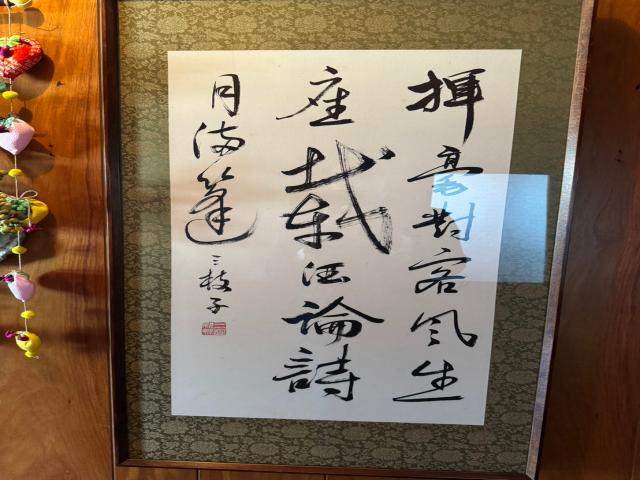 揮毫對客風生
座載酒論詩
月滿篷 三枝子